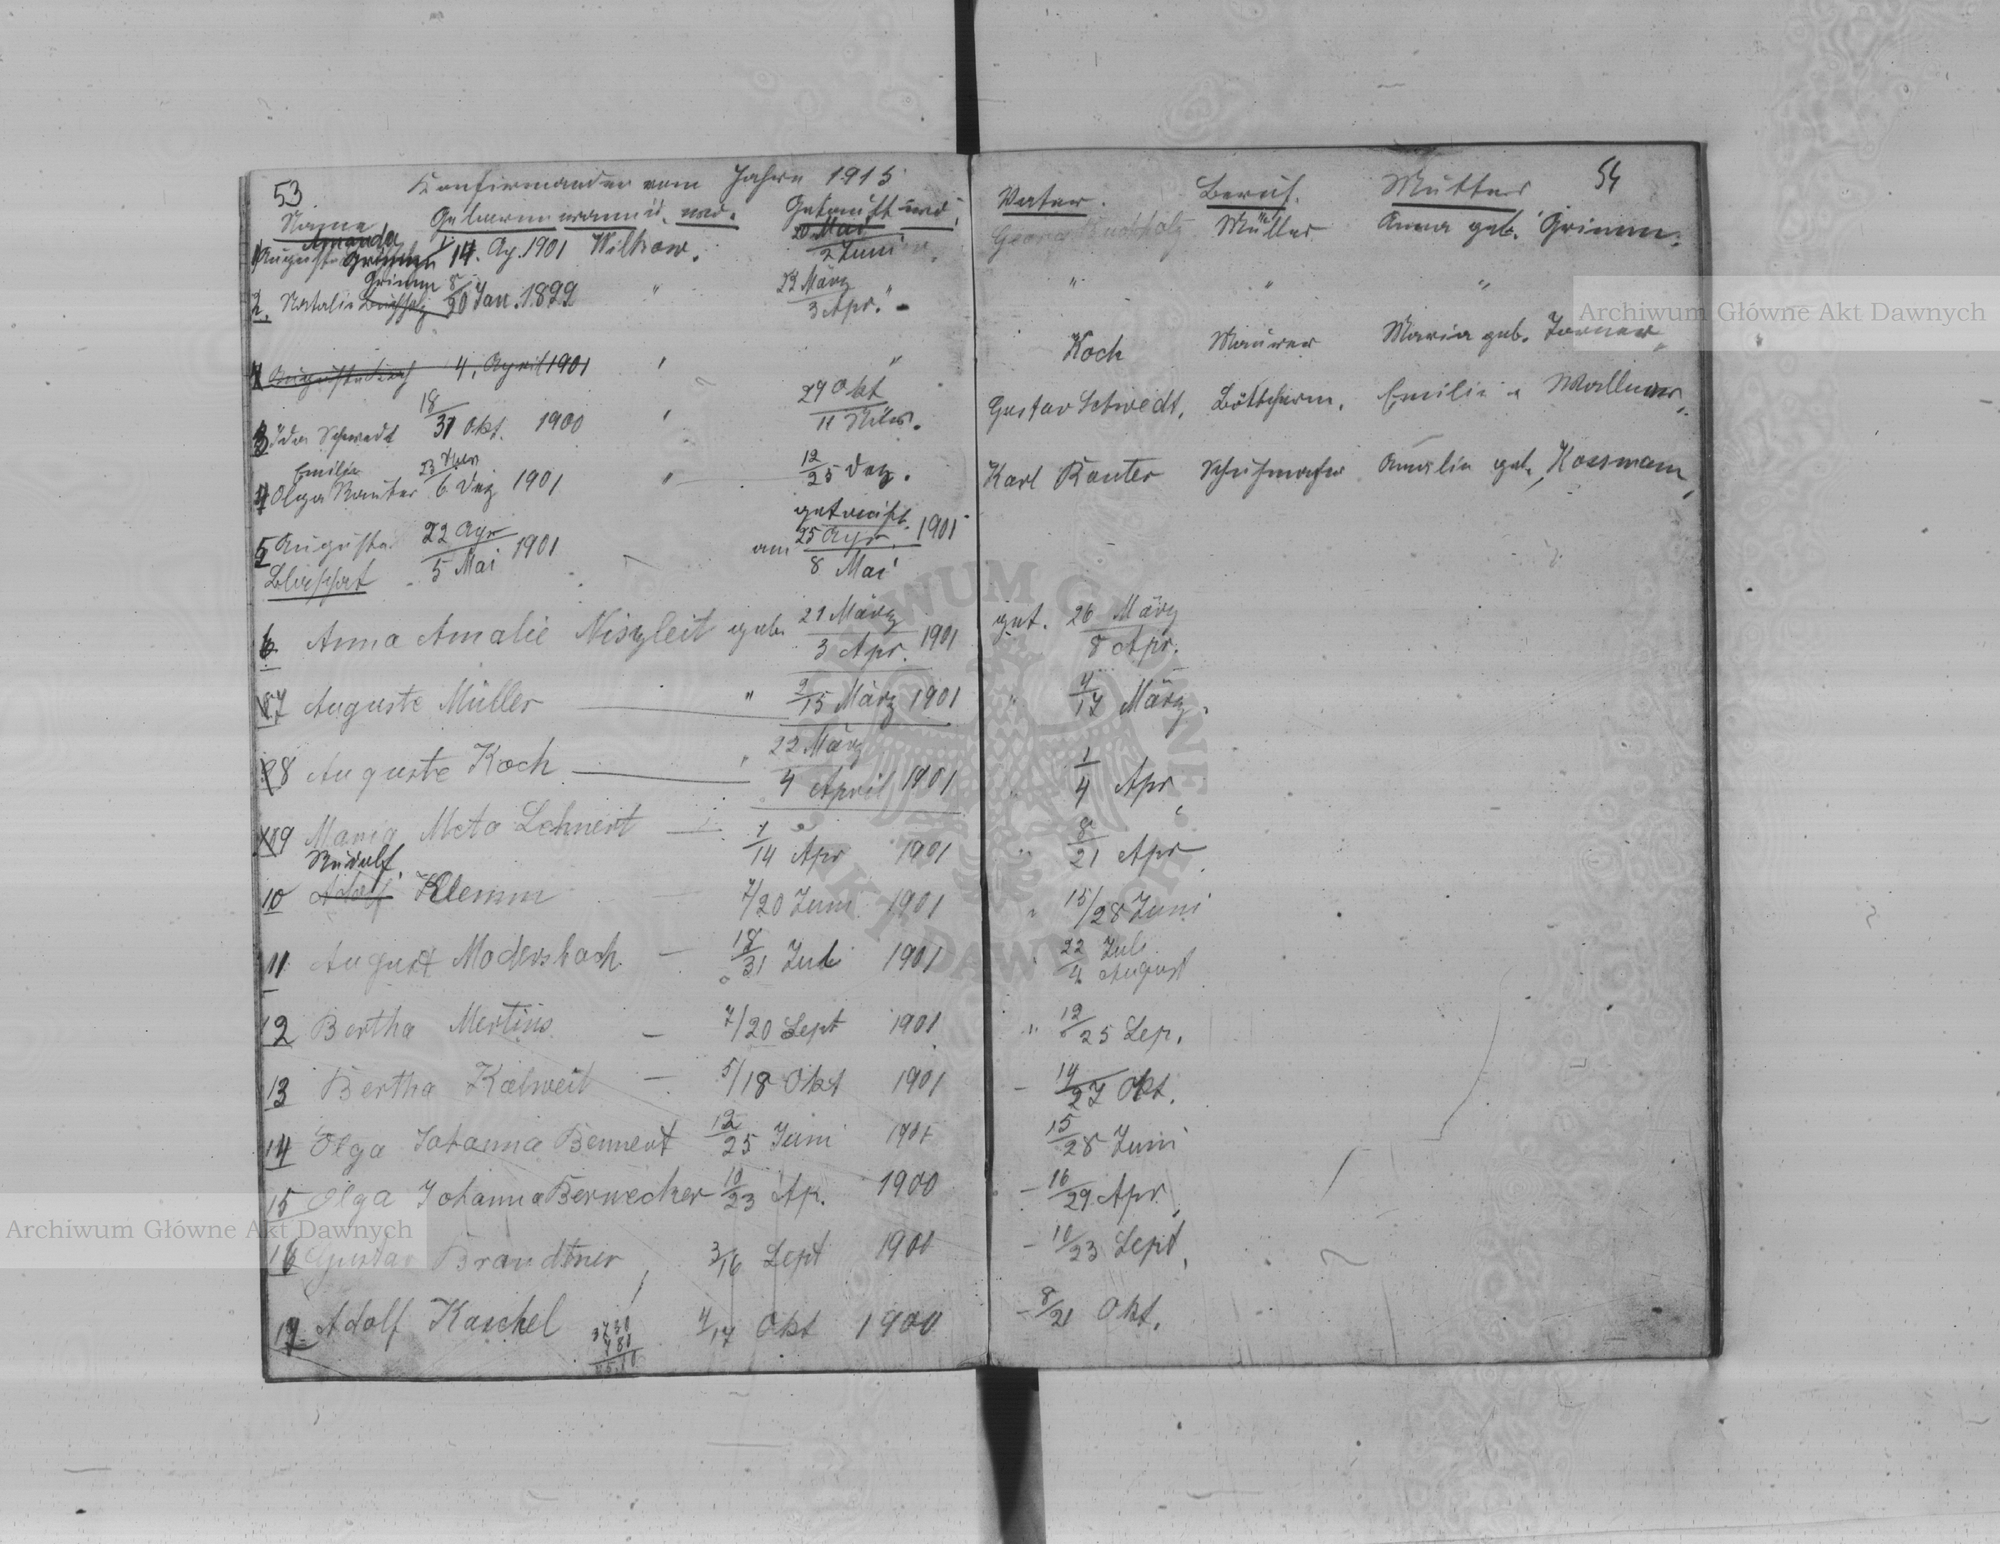 53
Konfirmanden vom Jahre 1915
Name Geboren wann u. wo. Getauft wo.
1 Auguste Amanda Grimm 1/14. Ap. 1901 Wilkow. 20 Mai / 2 Juni
2. Natalie Grimm Buchholz 8/20 Jan. 1899 " 22 März / 3 Apr. "
Auguste Koch 4. April 1901 " "
3 Ida Schwedt 18/31 Okt. 1900 " 29 Okt / 11 Nov.
4 Olga Emilie Kanter 23 Nov / 6 Dez 1901 " 12/25 Dez.
5 Auguste 22 Apr / 5 Mai 1901 getauft am 25 Apr. / 8 Mai 1901
6 Anna Amalie Niszleit geb. 21 März / 3 Apr. 1901
7 Auguste Müller " 2/15 März 1901
8 Auguste Koch " 22 März / 4 April 1901
9 Maria Meta Lehnert — 1/14 Apr 1901
10 Rudolf Adolf Klemm 7/20 Juni 1901
11 August Modersbach — 18/31 Juli 1901
12 Bertha Mertins — 7/20 Sept 1901
13 Bertha Kalweit — 5/18 Okt 1901
14 Olga Johanna Bennert 12/25 Juni 1901
15 Olga Johanna Bernecker 10/23 Ap. 1900
16 Gustav Brandtner, 3/16 Sept 1900
17 Adolf Kaschel 4/17 Okt 1900
54
Vater. Beruf. Mutter
Georg Buchholz Müller Anna geb. Grimm.
" " "
Koch Maurer Maria geb. Torner
Gustav Schwedt, Böttcherm. Emilie "
Karl Kanter Schuhmacher Amalie geb. Kossmann,
get. 26 März / 8 Apr.
" 4/17 März.
" 1/4 Apr
" 8/21 Apr
" 15/28 Juni
" 22 Juli / 4 August
" 12/25 Sep.
– 14/27 Okt.
15/28 Juni
– 16/29 Apr
– 10/23 Sept,
– 8/21 Okt.
Archiwum Główne Akt Dawnych
Archiwum Główne Akt Dawnych
ARCHIWUM GŁÓWNE AKT DAWNYCH